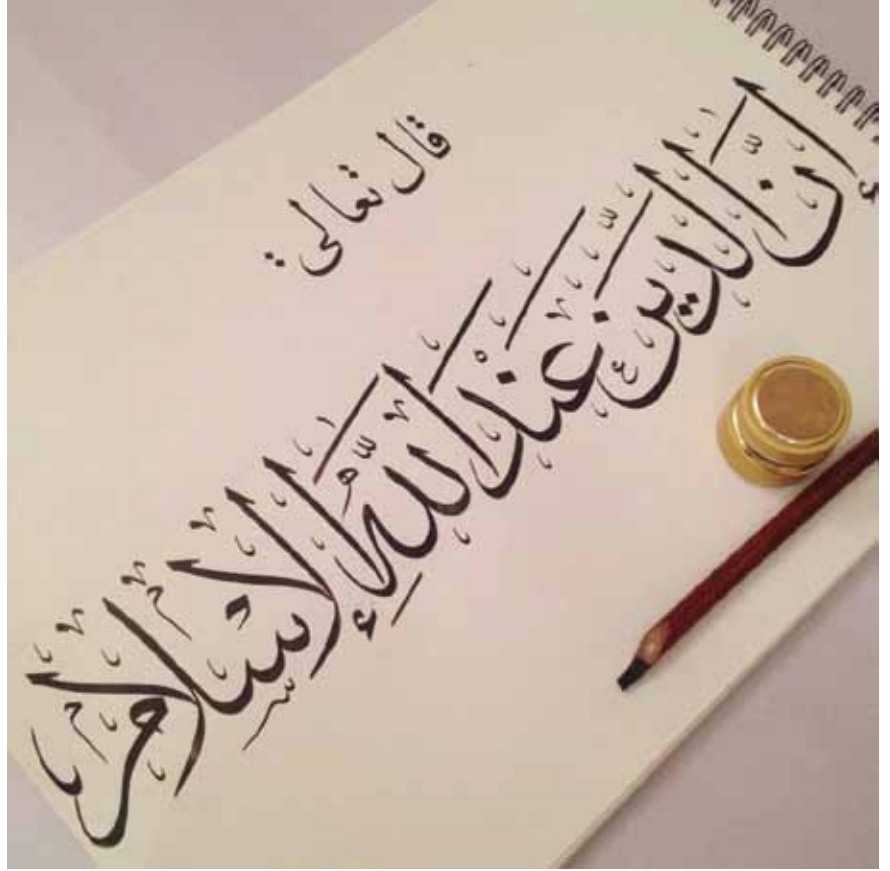 قال تعالى:
إنَّ الدِّينَ عِنْدَ اللَّهِ الإِسْلَام